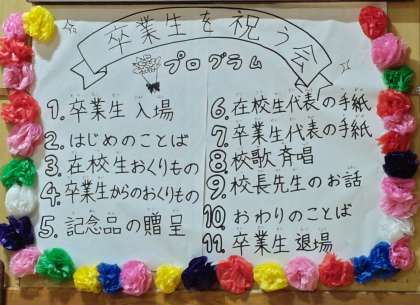 卒業生を祝う会
プログラム
1. 卒業生 入場
2. はじめのことば
3. 在校生おくりもの
4. 卒業生からのおくりもの
5. 記念品の贈呈
6. 在校生代表の手紙
7. 卒業生代表の手紙
8. 校歌 斉唱
9. 校長先生のお話
10. おわりのことば
11. 卒業生 退場